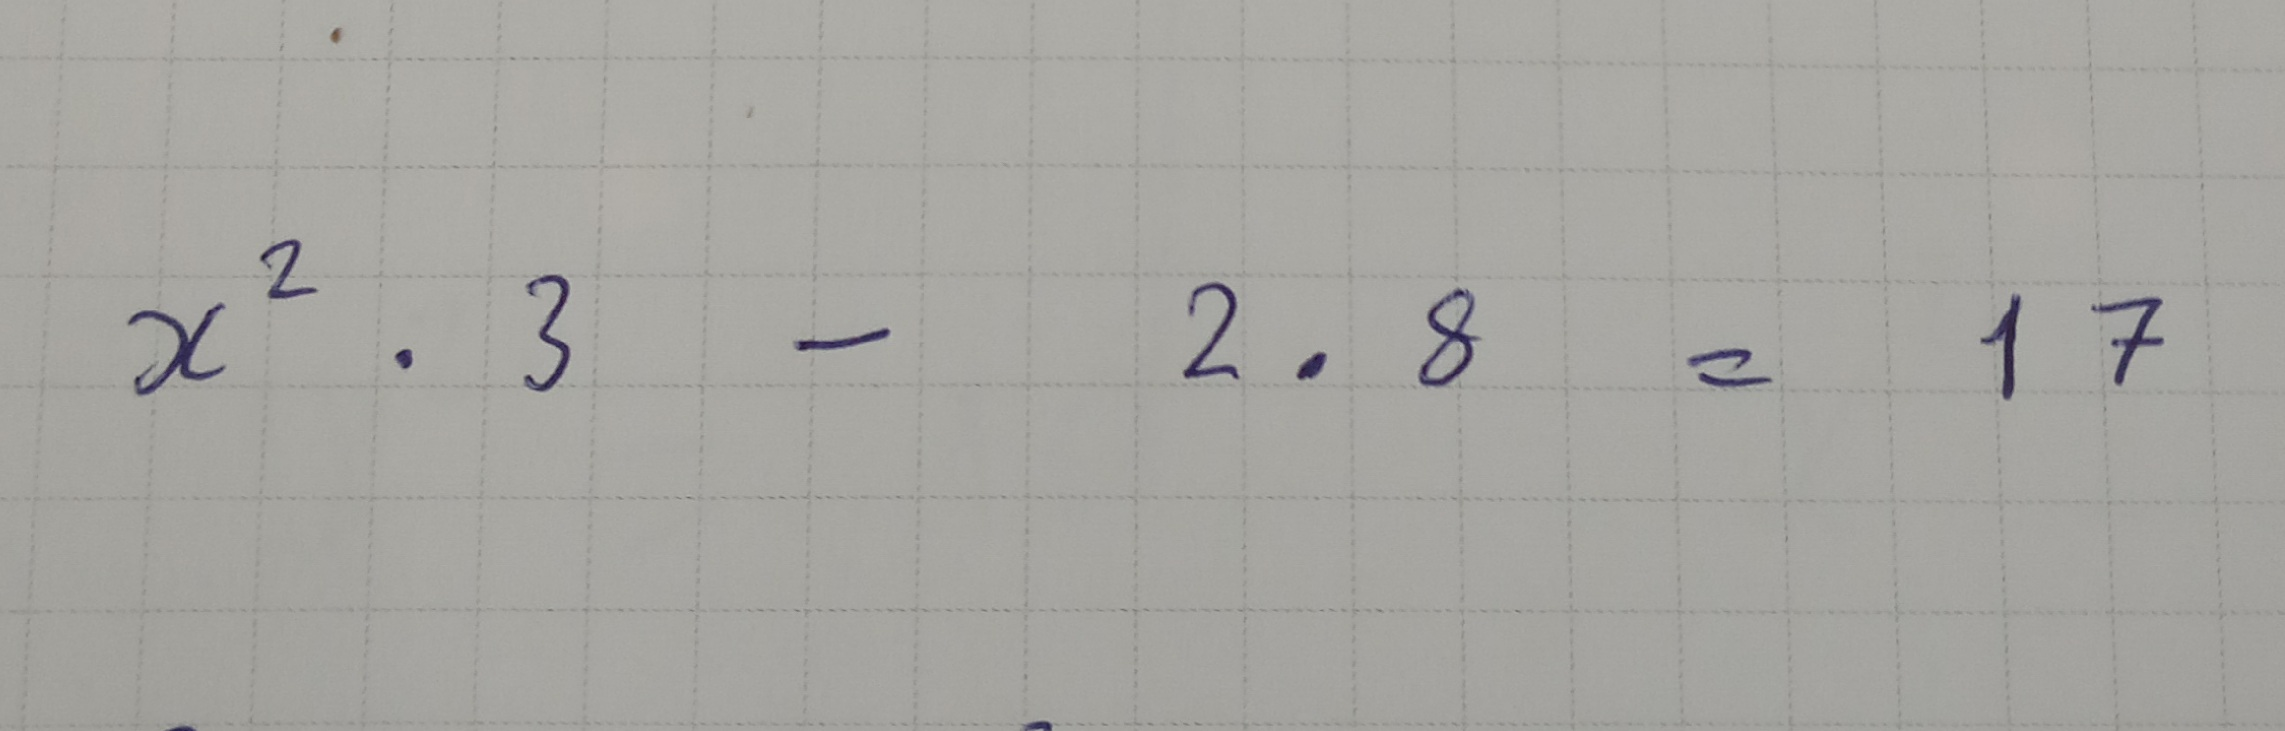 x² . 3 - 2 . 8 = 17